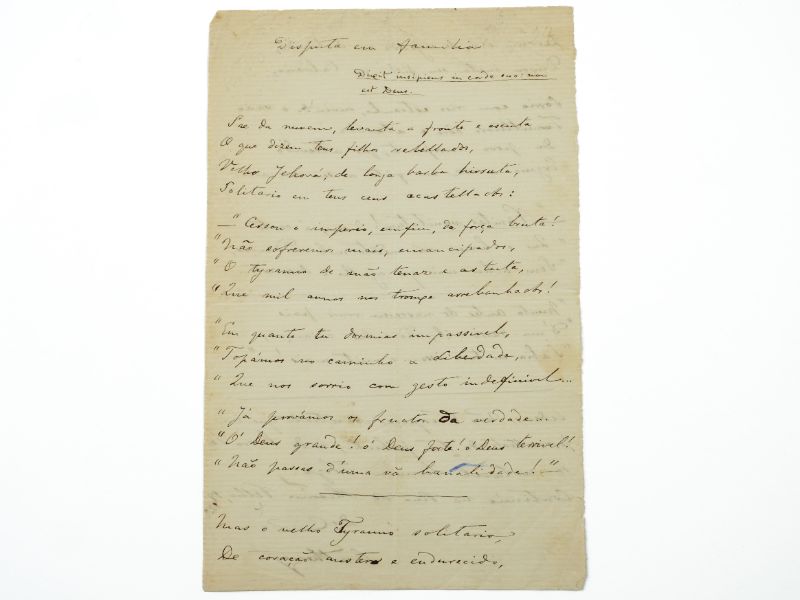 Disputa em familia
Dixit insipiens in corde suo: non
est Deus.
Sae da nuvem, levanta a fronte e escuta
O que dizem teus filhos rebellados,
Velho Jehová, de longa barba hirsuta,
Solitario em teus ceus acastellados:
—"Cessou o imperio, emfim, da força bruta!
"Não soffreremos mais, emancipados,
"O tyranno de mão tenaz e astuta,
"Que mil annos nos trouxe arrebanhados!
"Em quanto tu dormias impassivel,
"Topámos no caminho a Liberdade,
"Que nos sorrio com gesto indefinivel...
"Já provámos os fructos da verdade...
"Ó Deus grande! ó Deus forte! ó Deus terrivel!
"Não passas d'uma vã banalidade!—"
Mas o velho Tyranno solitario,
De coração austero e endurecido,